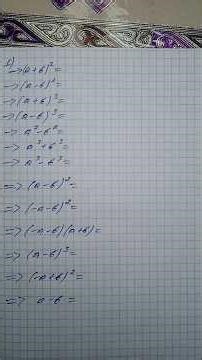 1)
→ (a+b)²=
→ (a-b)²=
→ (a+b)³=
→ (a-b)³=
→ a²-b²=
→ a³+b³=
→ a³-b³=
=> (a-b)²=
=> (-a-b)²=
=> (-a-b)(a+b)=
=> (a-b)³=
=> (-a+b)²=
=> a-b=